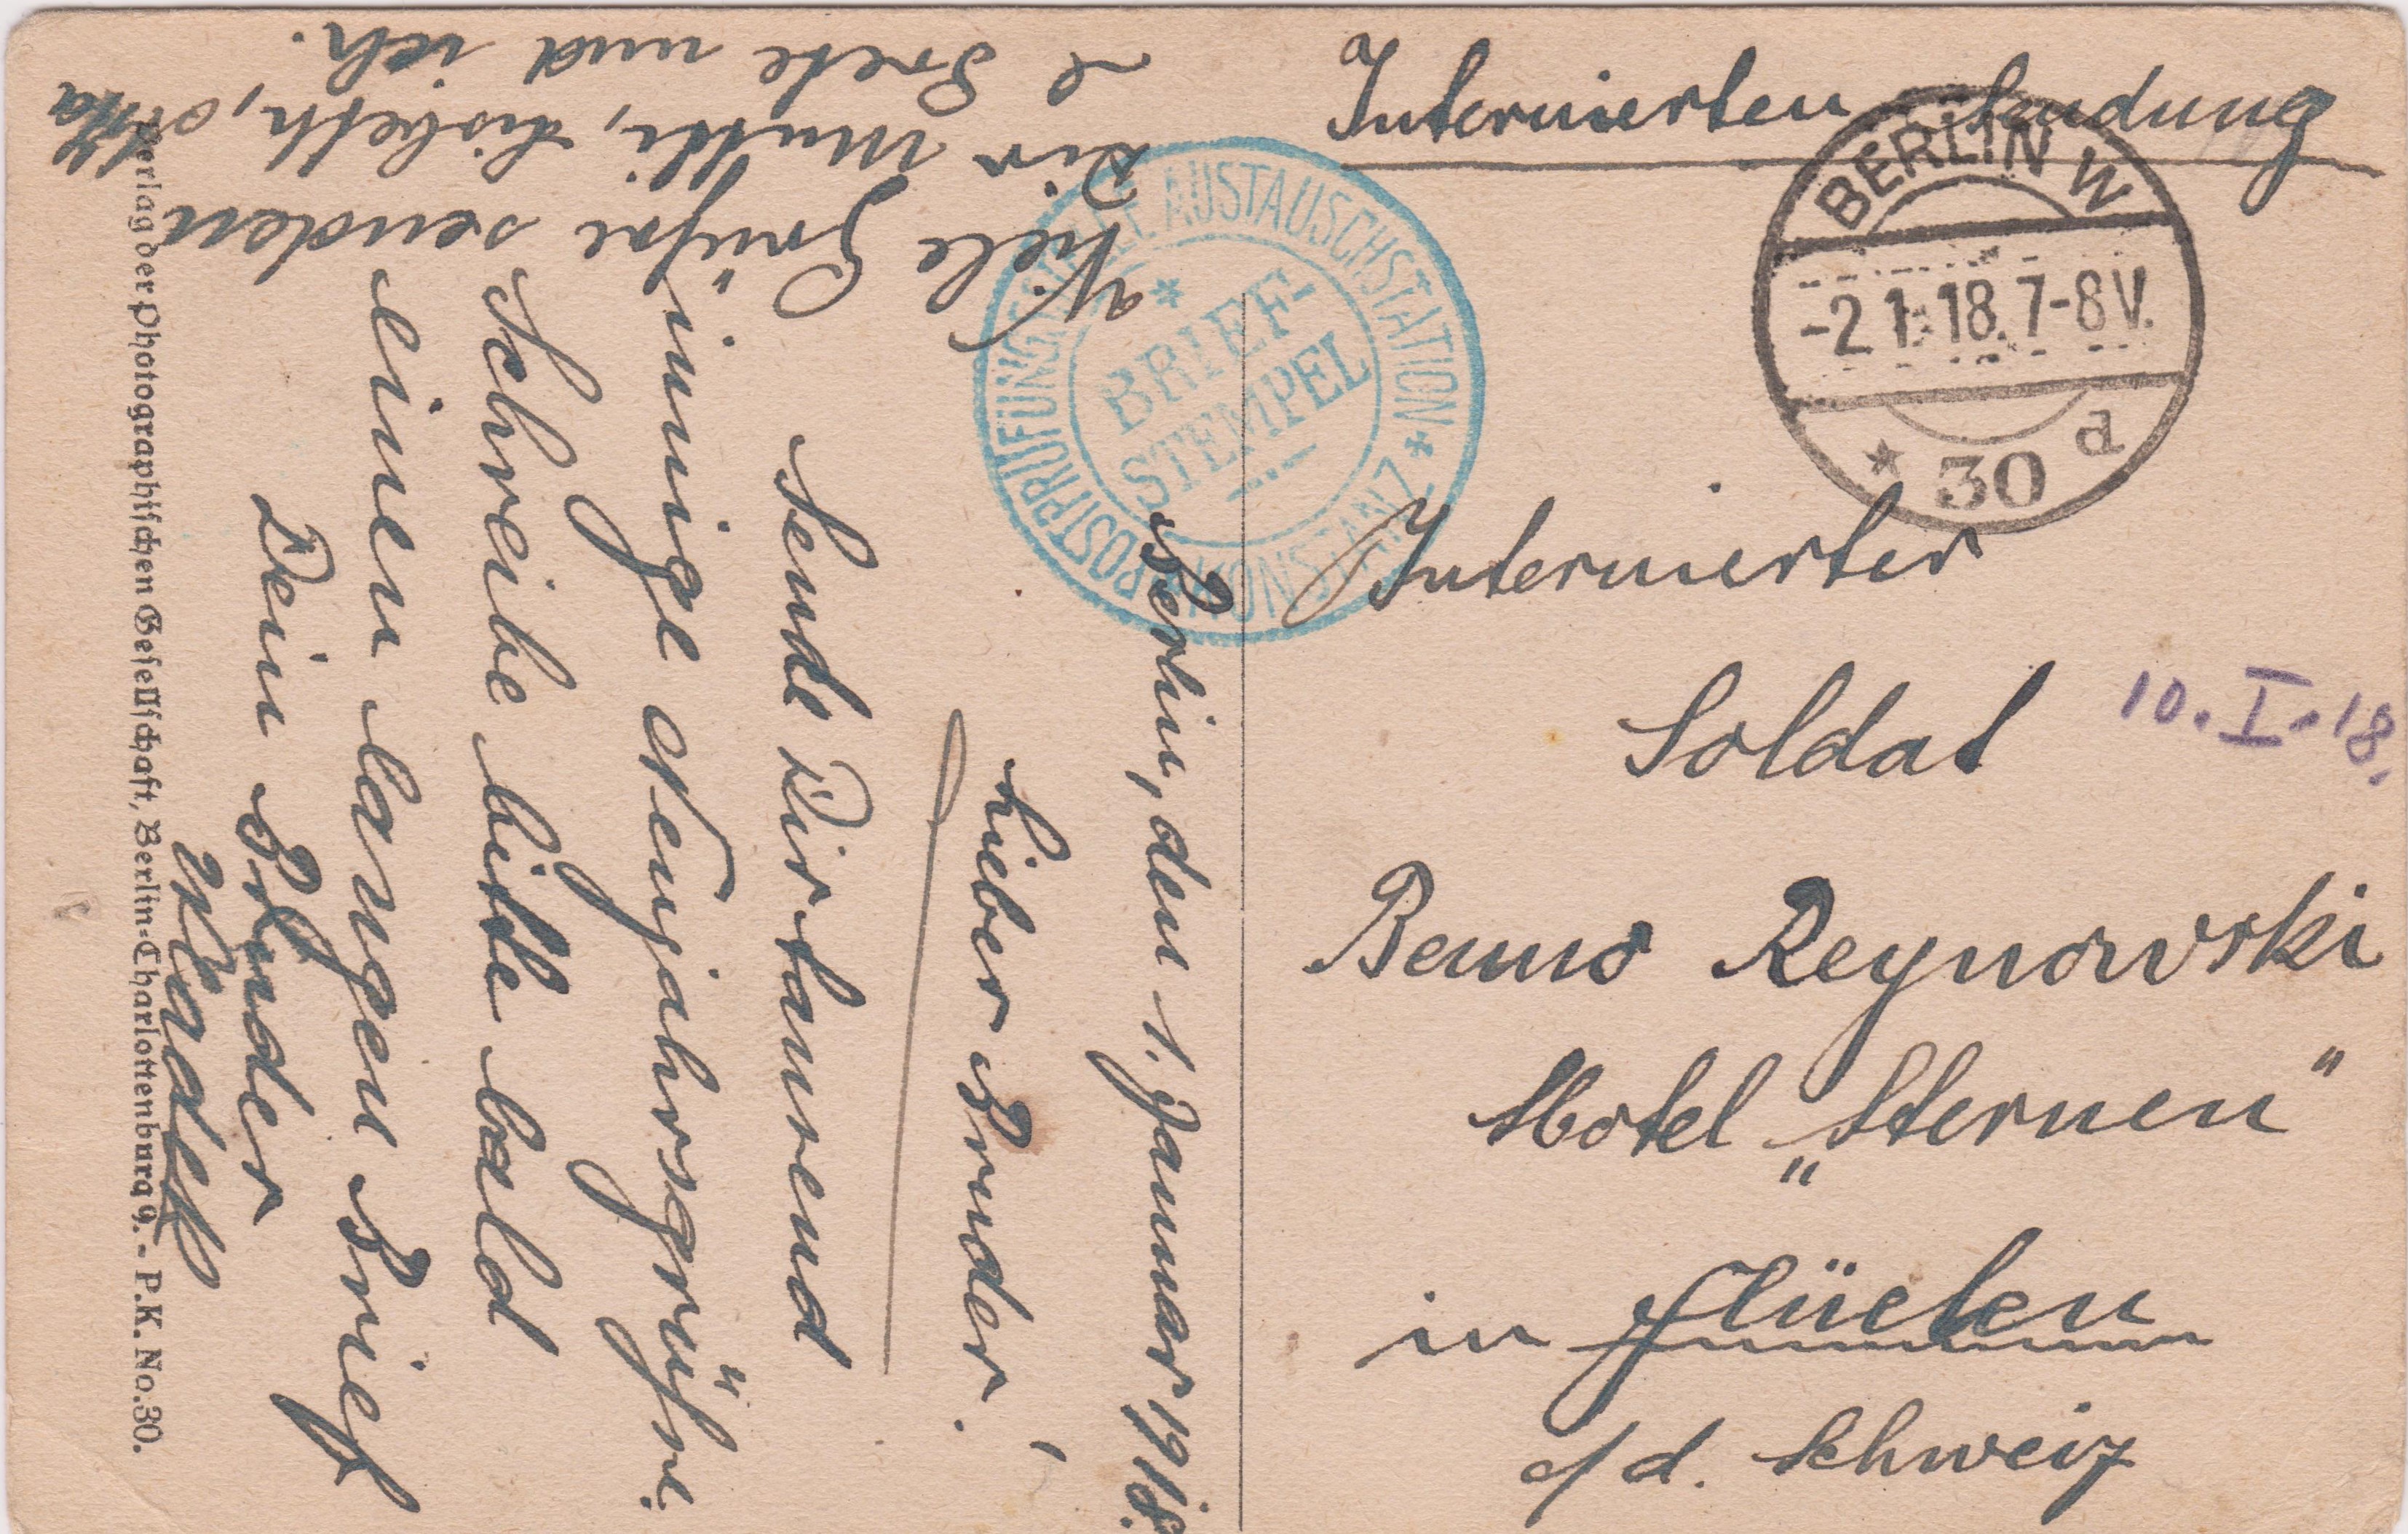 Internierten-Sendung
BERLIN W
-2.1.18. 7-8 V.
* 30 d
POSTPRÜFUNGSSTELLE AUSTAUSCHSTATION * KONSTANZ *
* BRIEF-
STEMPEL
Internierter
Soldat
10. I. 18.
Benno Reynowski
Hotel „Sternen"
in Flüelen
a/d. Schweiz
Berlin, den 1. Januar 1918.
Lieber Bruder!
Sende Dir tausend
innige Neujahrsgrüße.
Schreibe bitte bald
einen langen Brief
Dein Bruder
Wladek
Viele Grüße senden
Dir Mutti, Lisbeth,
Grete und ich.
Verlag der Photographischen Gesellschaft, Berlin-Charlottenburg 9. - P.K. No. 30.